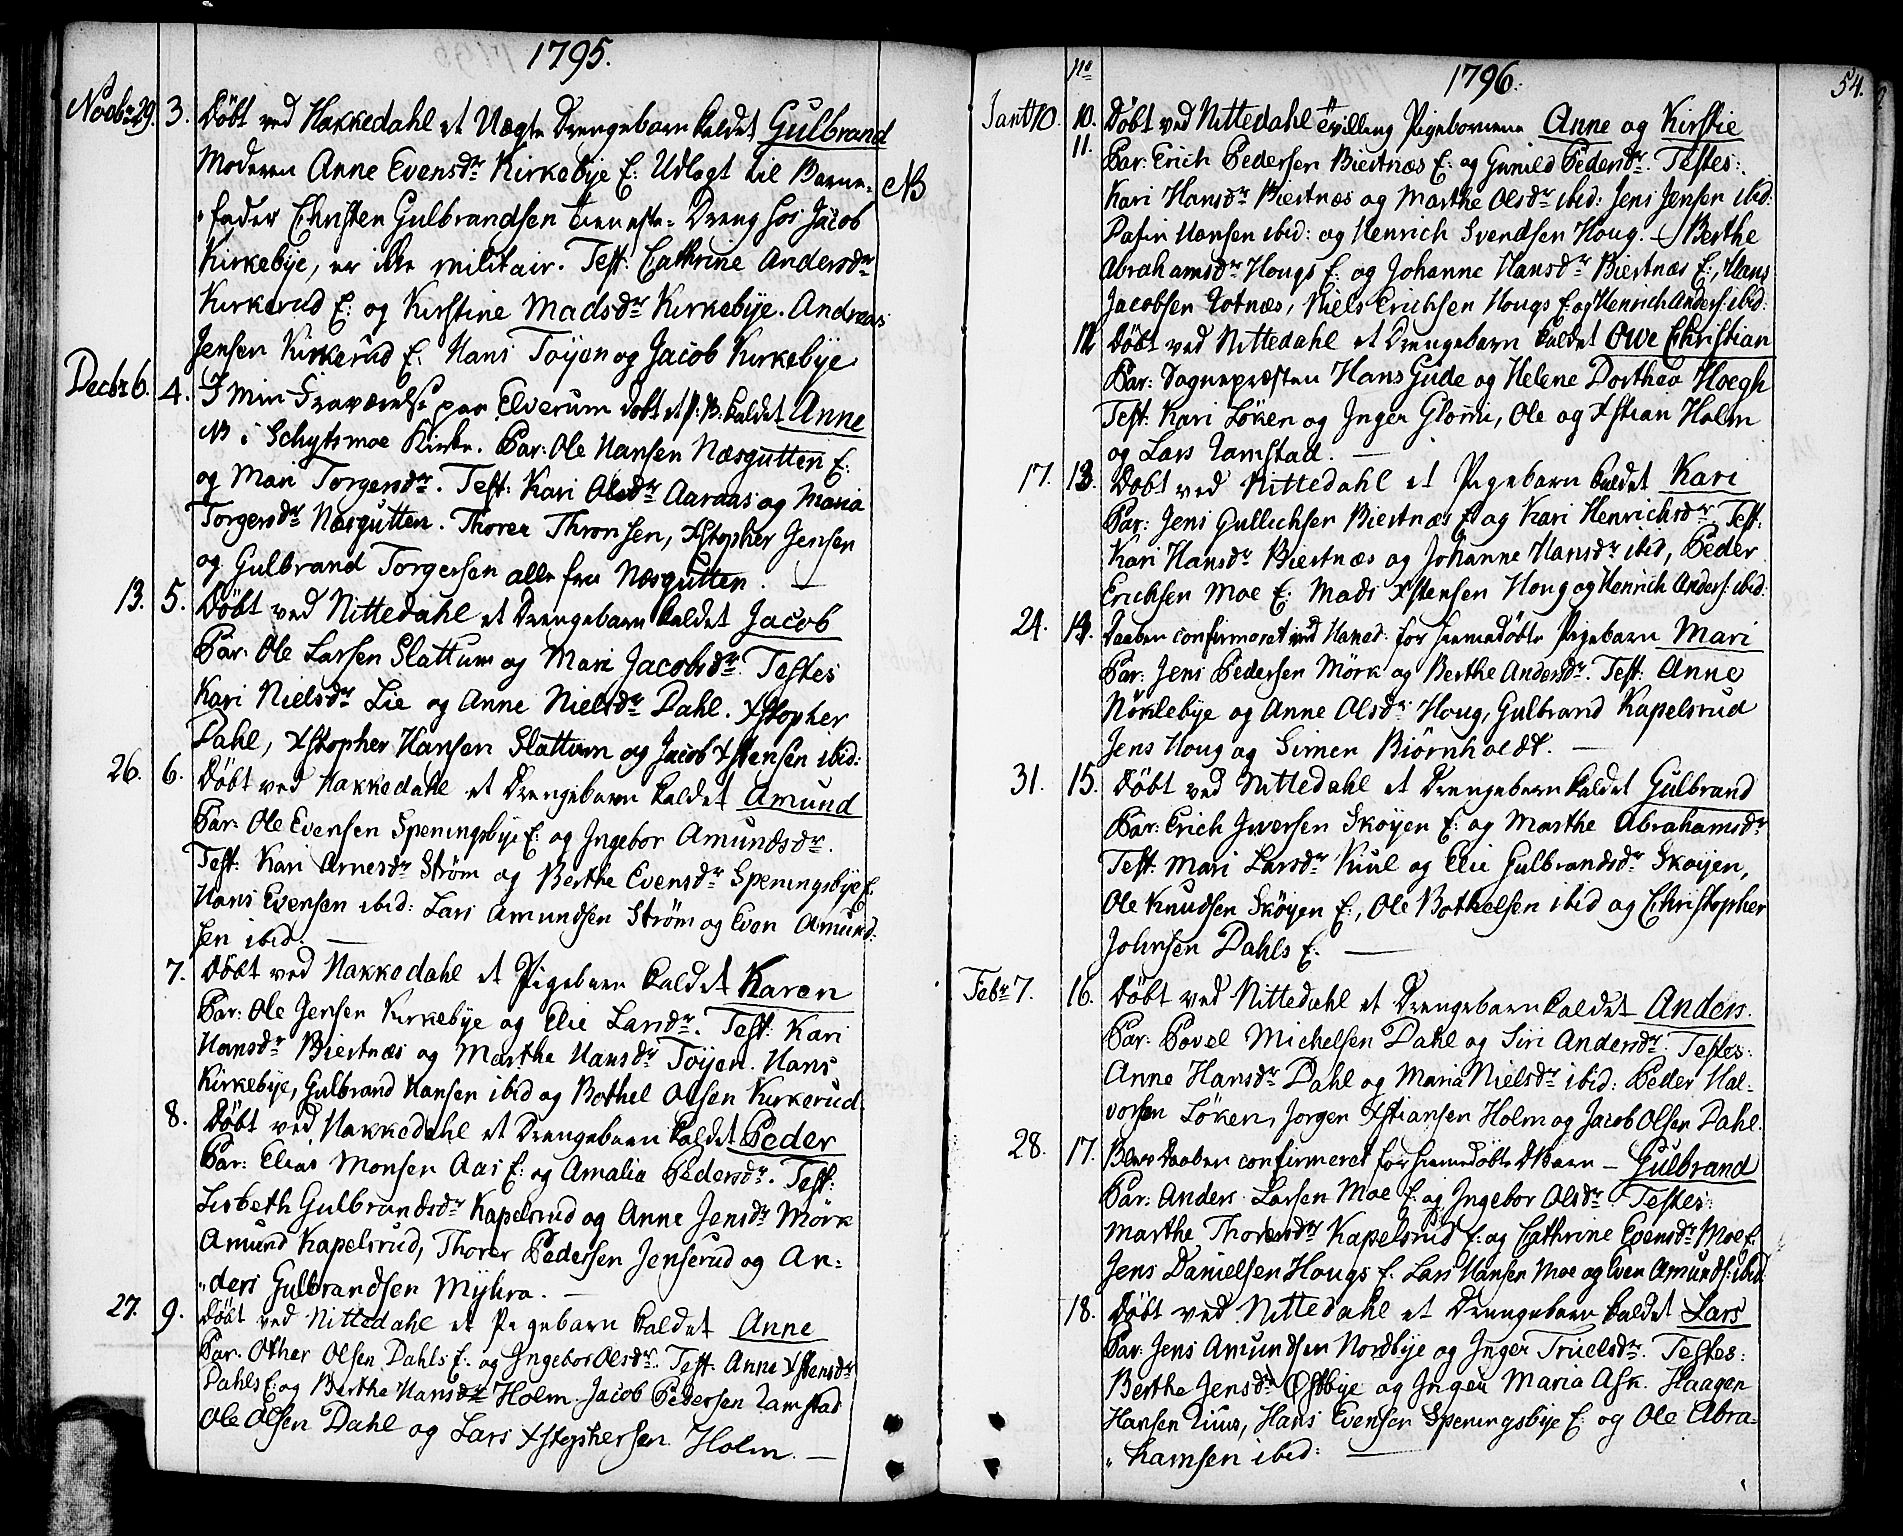 1795.
Novbr 29. 3. Döbt ved Hakkedahl et Uægte Drengebarn kaldet Gulbrand
Moderen Anne Evensdr Kirkebye E: Udlagt til Barne-
fader Christen Gulbrandsen tieneste-Dreng hos Jacob
NB
Kirkebye, er ikke militair. Test: Cathrine Andersdr
Kirkerud E: og Kirstine Madsdr Kirkebye. Andreas
Jensen Kirkerud E: Hans Töyen og Jacob Kirkebye
Decbr 6. 4. I min Fraværelse paa Elverum döbt et P: B: kaldet Anne
NB i Schytsmoe Kirke. Par: Ole Hansen Næsgutten E:
og Mari Torgersdr. Test: Kari Olsdr Aaraas og Maria
Torgersdr Næsgutten. Thorer Thronsen, Xstopher Jensen
og Gulbrand Torgersen alle fra Næsgutten.
13. 5. Döbt ved Nittedahl et Drengebarn kaldet Jacob
Par: Ole Larsen Slattum og Mari Jacobsdr. Testes
Kari Nielsdr Lie og Anne Nielsdr Dahl. Xstopher
Dahl, Xstopher Hansen Slattum og Jacob Xstensen ibid:
26. 6. Döbt ved Hakkedahl et Drengebarn kaldet Amund
Par: Ole Evensen Speningsbye E: og Ingebor Amundsdr.
Test: Kari Arnesdr Ström og Berthe Evensdr Speningsbye E:
Hans Evensen ibid: Lars Amundsen Ström og Even Amund-
sen ibid.
7. Döbt ved Hakkedahl et Pigebarn kaldet Karen
Par: Ole Jensen Kirkebye og Elie Larsdr. Test: Kari
Hansdr Biertnæs og Marthe Hansdr Töyen. Hans
Kirkebye, Gulbrand Hansen ibid og Bothel Olsen Kirkerud.
8. Döbt ved Hakkedahl et Drengebarn kaldet Peder
Par: Elias Monsen Aas E: og Amalia Pedersdr. Test:
Lisbeth Gulbrandsdr Kapelsrud og Anne Jensdr Mörk
Amund Kapelsrud, Thorer Pedersen Jenserud og An-
ders Gulbrandsen Myhra.
27. 9. Döbt ved Nittedahl et Pigebarn kaldet Anne
Par: Other Olsen Dahls E: og Ingebor Olsdr. Test: Anne Xstensdr
Dahls E: og Berthe Hansdr Holm. Jacob Pedersen Ramstad
Ole Olsen Dahl og Lars Xstophersen Holm.
1796. 54.
No
Janr 10. 10. Döbt ved Nittedahl tvilling Pigebörnene Anne og Kirstie
11. Par: Erich Pedersen Biertnæs E: og Gunild Pedersdr. Testes:
Kari Hansdr Biertnæs og Marthe Olsdr ibid: Jens Jensen ibid:
Hansen ibid: og Henrich Svendsen Houg. Berthe
Abrahamsdr Hougs E: og Johanne Hansdr Biertnæs E:, Hans
Jacobsen Rotnæs, Niels Erichsen Hougs E: og Henrich Anders: ibid:
12. Döbt ved Nittedahl et Drengebarn kaldet Owe Christian
Par: Sognepræsten Hans Gude og Helene Dorthea Hoegh
Test: Kari Löken og Inger Glomi, Ole og Xstian Holm
og Lars Ramstad.
17. 13. Döbt ved Nittedahl et Pigebarn kaldet Kari
Par: Jens Gullichsen Biertnæs E: og Kari Henrichsdr Test:
Kari Hansdr Biertnæs og Johanne Hansdr ibid, Peder
Erichsen Moe E: Mads Xstensen Houg og Henrich Anders: ibid:
24. 14. Daaben confirmeret ved Hakad: for hiemedöbte Pigebarn Mari
Par: Jens Pedersen Mörk og Berthe Andersdr. Test: Anne
Nörlebye og Anne Olsdr Houg, Gulbrand Kapelsrud
Jens Houg og Simen Biörnholdt.
31. 15. Döbt ved Nittedahl et Drengebarn kaldet Gulbrand
Par: Erich Iversen Sköyen E: og Marthe Abrahamsdr
Test: Mari Larsdr Kuul og Elie Gulbrandsdr Sköyen,
Ole Knudsen Sköyen E:, Ole Bothelsen ibid og Christopher
Johnsen Dahls E:
Febr 7. 16. Döbt ved Nittedahl et Drengebarn kaldet Anders.
Par: Povel Michelsen Dahl og Siri Andersdr. Testes:
Anne Hansdr Dahl og Maria Nielsdr ibid: Peder Hal-
vorsen Löken, Jörgen Xstiansen Holm og Jacob Olsen Dahl.
28. 17. Blev Daaben confirmeret for hiemedöbte D:Barn – Gulbrand
Par: Anders Larsen Moe E: og Ingebor Olsdr. Testes:
Marthe Thorersdr Kapelsrud E: og Cathrine Evensdr Moe E:
Jens Danielsen Hougs E: Lars Hansen Moe og Even Amunds: ibid
18. Döbt ved Nittedahl et Drengebarn kaldet Lars
Par: Jens Amundsen Nordbye og Inger Truelsdr. Testes:
Berthe Jensdr Östbye og Inger Maria Ask. Haagen
Hansen, Hans Evensen Speningsbye E: og Ole Abra-
hamsen ibid: